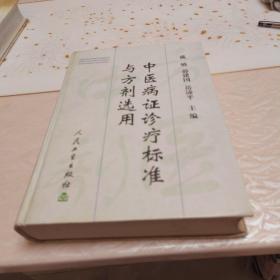 主编
中医病证诊疗标准
与方剂选用
人民卫生出版社